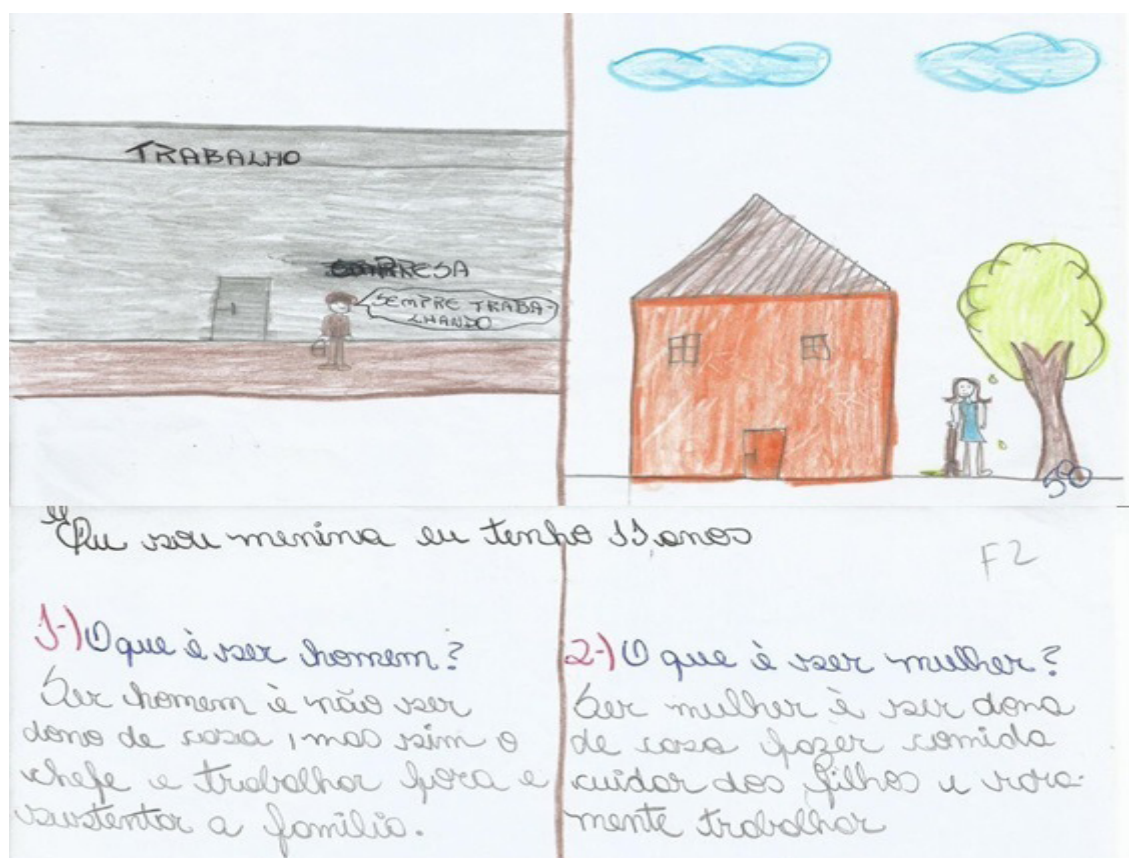 TRABALHO
EMPRESA
SEMPRE TRABA-
LHANDO
50
"Eu sou menina eu tenho 11 anos
F2
1-) O que è ser homem?
Ser homem è não ser
dono de casa, mas sim o
chefe e trabalhar fora e
sustentar a família.
2-) O que è ser mulher?
Ser mulher è ser dona
de casa fazer comida
cuidar dos filhos e rara-
mente trabalhar